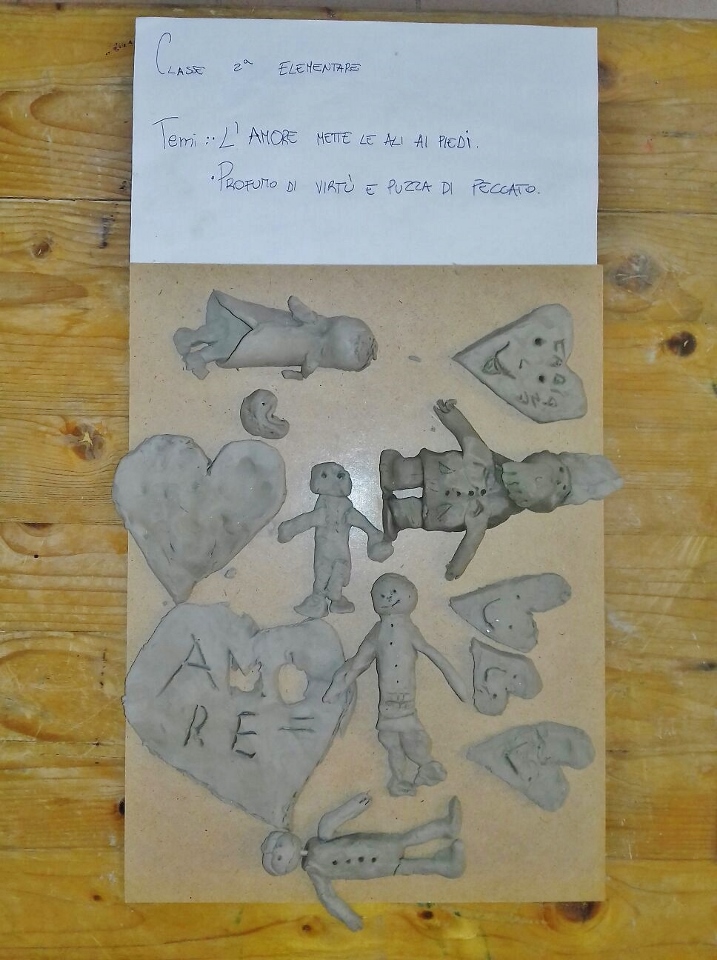 Classe 2ª Elementare
Temi: · L'AMORE METTE LE ALI AI PIEDI.
· PROFUMO DI VIRTÙ E PUZZA DI PECCATO.
AMO
RE =